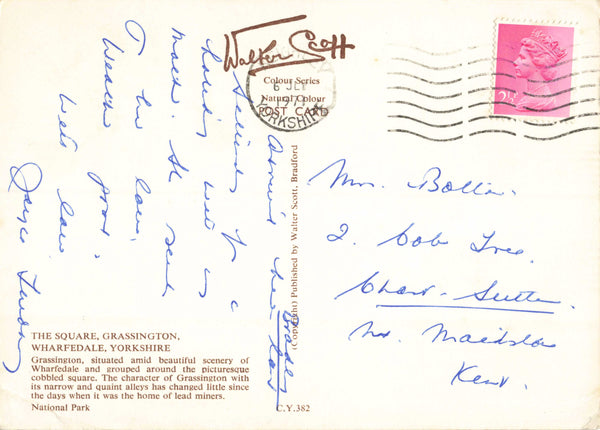 Walter Scott
Colour Series
Natural Colour
POST CARD
6 JLY
YORKSHIRE
2½P
Arrived here
Bradley
last
Saturday for a
holiday with my
mother. She sends
to her love.
Weather good.
With love
Joyce
(Copyright) Published by Walter Scott, Bradford
Mrs. Bolla
2. Cob Tree
Chart-Sutton
Nr. Maidstone
Kent.
THE SQUARE, GRASSINGTON,
WHARFEDALE, YORKSHIRE
Grassington, situated amid beautiful scenery of
Wharfedale and grouped around the picturesque
cobbled square. The character of Grassington with
its narrow and quaint alleys has changed little since
the days when it was the home of lead miners.
National Park
C.Y.382